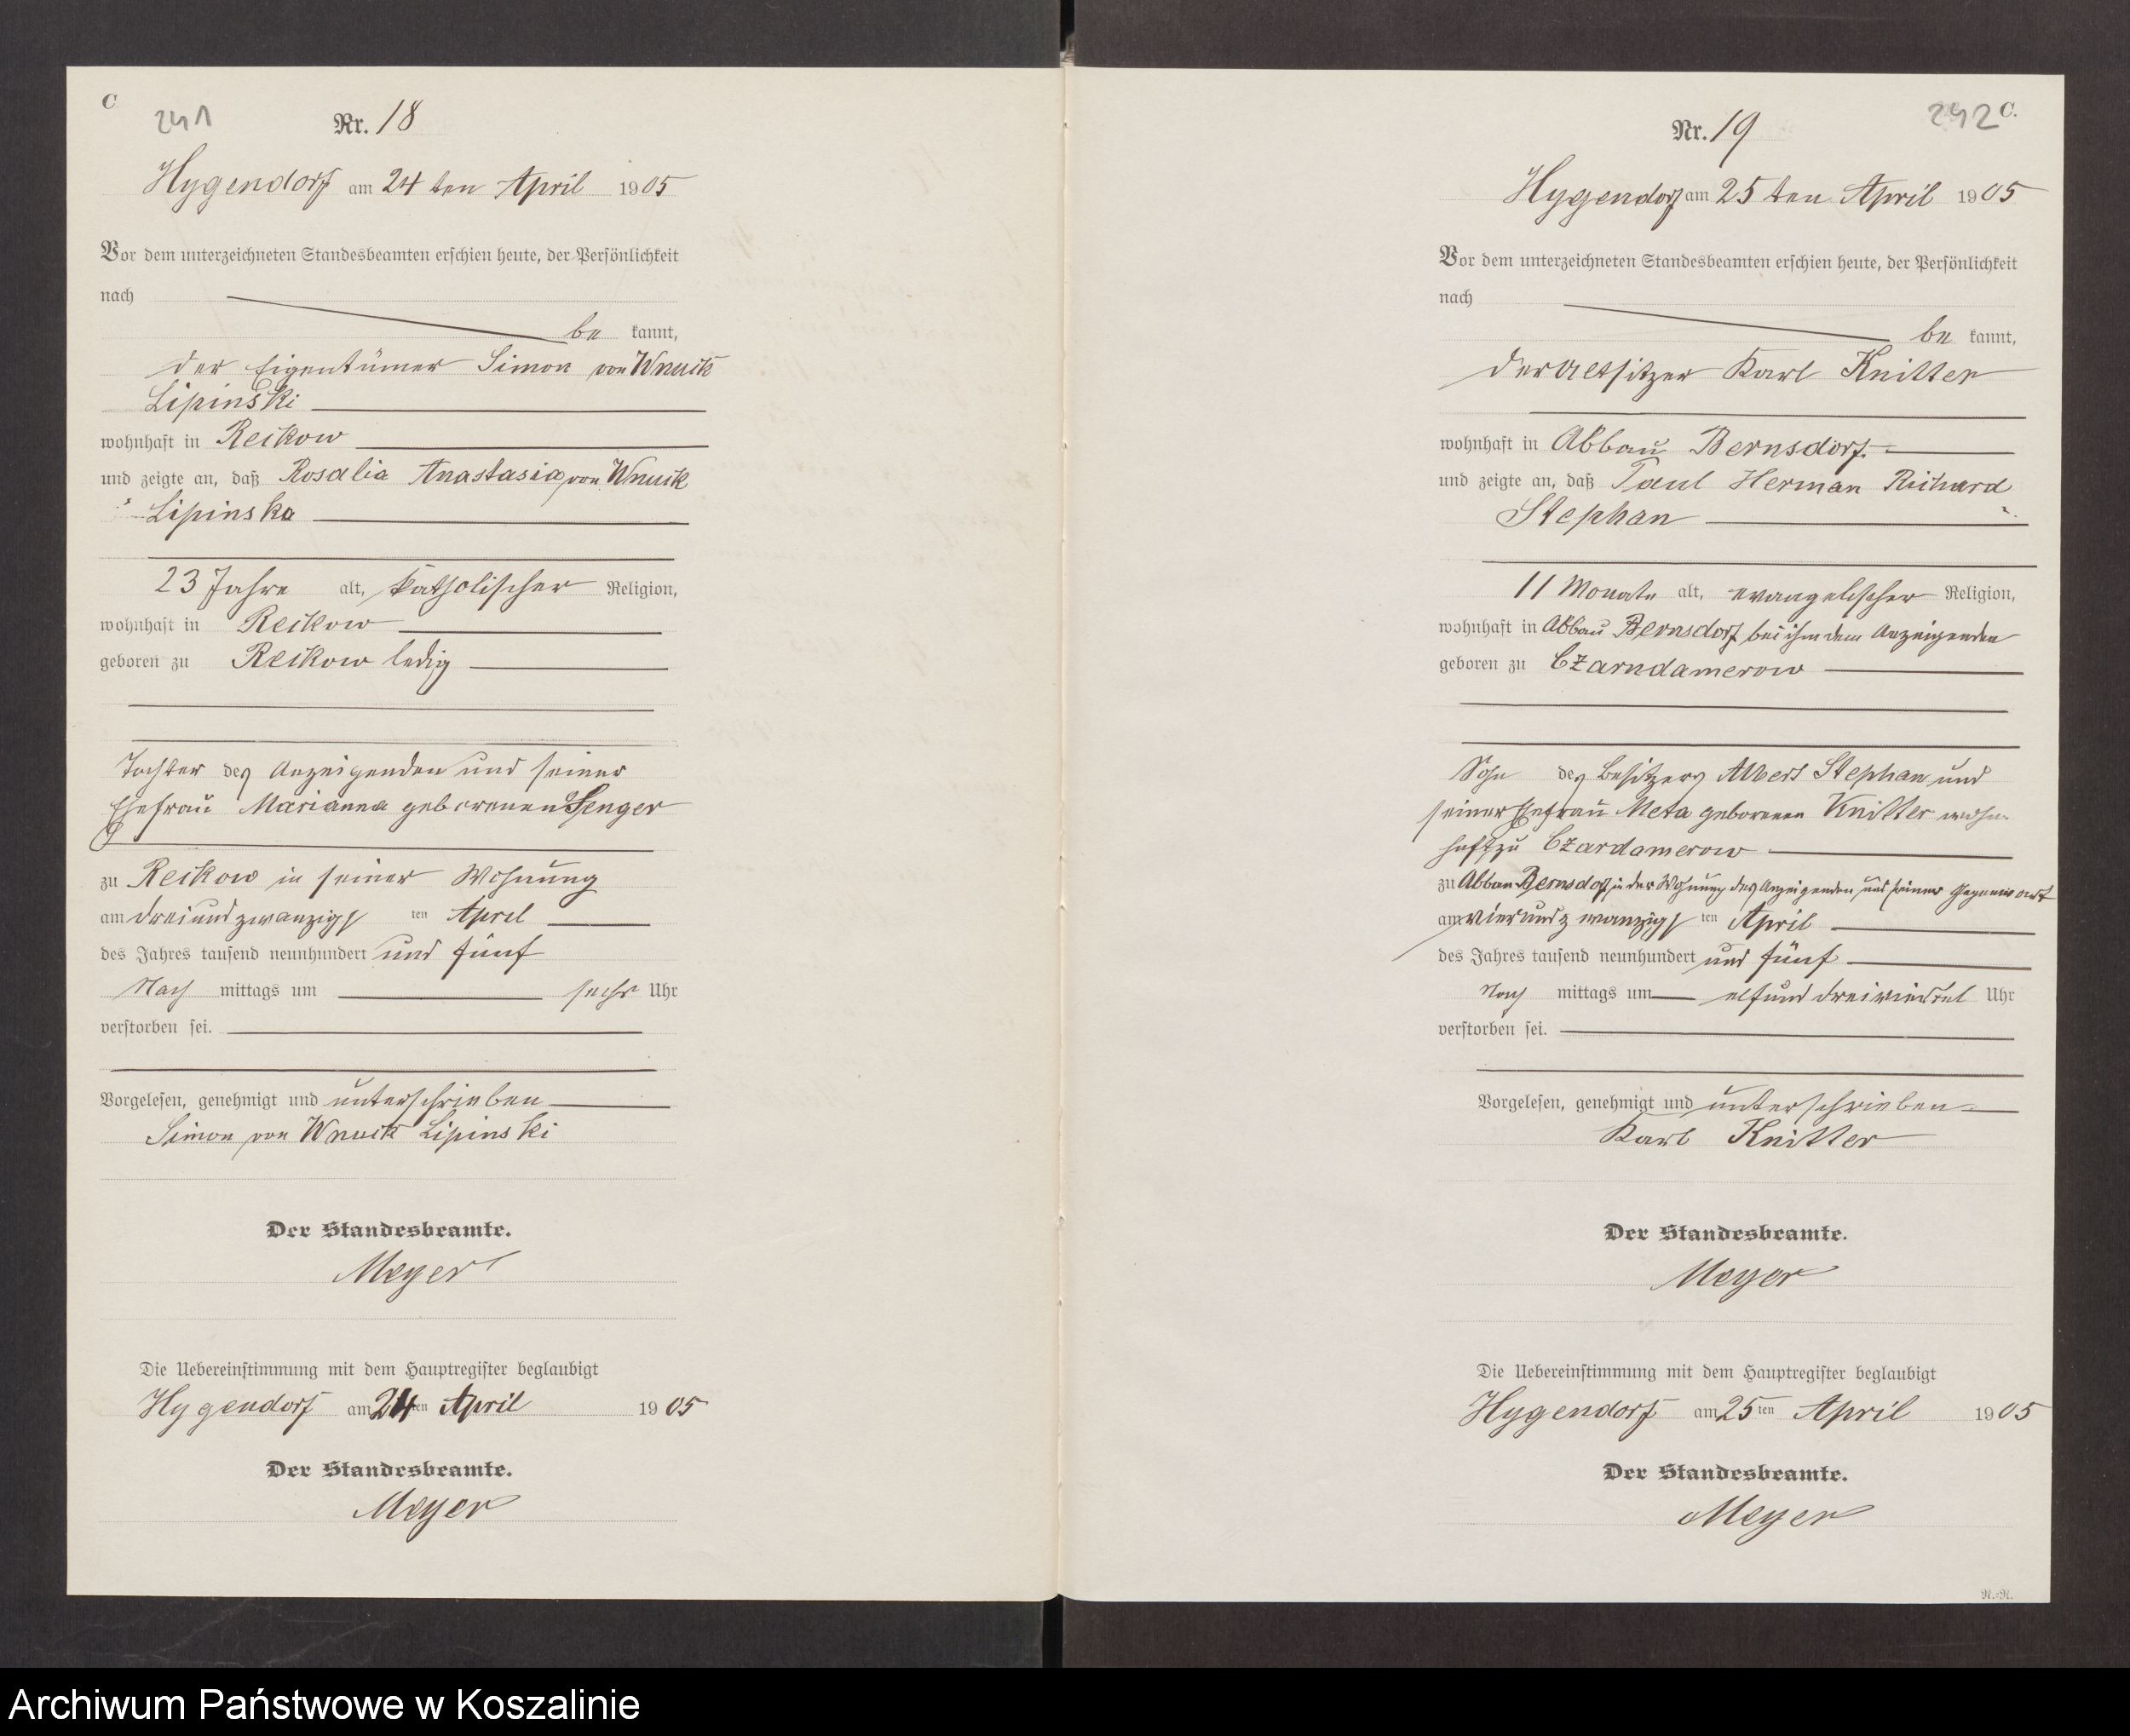 C
241
Nr. 18
Hygendorf am 24 ten April 1905
Vor dem unterzeichneten Standesbeamten erschien heute, der Persönlichkeit
nach
be kannt,
der Eigentümer Simon von Wnuck
Lipinski
wohnhaft in Reikow
und zeigte an, daß Rosalia Anastasia von Wnuck
Lipinska
23 Jahre alt, katholischer Religion,
wohnhaft in Reikow
geboren zu Reikow ledig
Tochter des Anzeigenden und seiner
Ehefrau Marianna geborenen Senger
zu Reikow in seiner Wohnung
am dreiundzwanzigs ten April
des Jahres tausend neunhundert und fünf
Nach mittags um sechs Uhr
verstorben sei.
Vorgelesen, genehmigt und unterschrieben
Simon von Wnuck Lipinski
Der Standesbeamte.
Meyer
Die Uebereinstimmung mit dem Hauptregister beglaubigt
Hygendorf am 24 ten April 1905
Der Standesbeamte.
Meyer
242 C.
Nr. 19
Hygendorf am 25 ten April 1905
Vor dem unterzeichneten Standesbeamten erschien heute, der Persönlichkeit
nach
be kannt,
der Altsitzer Karl Knitter
wohnhaft in Abbau Bernsdorf
und zeigte an, daß Paul Herman Richard
Stephan
11 Monate alt, evangelischer Religion,
wohnhaft in Abbau Bernsdorf bei ihm dem Anzeigenden
geboren zu Czarndamerow
Sohn des Besitzers Albert Stephan und
seiner Ehefrau Meta geborenen Knitter wohn-
haft zu Czardamerow
zu Abbau Bernsdorf in der Wohnung des Anzeigenden und seiner Gegenwart
am vierundzwanzigs ten April
des Jahres tausend neunhundert und fünf
Nach mittags um elf und dreiviertel Uhr
verstorben sei.
Vorgelesen, genehmigt und unterschrieben
Karl Knitter
Der Standesbeamte.
Meyer
Die Uebereinstimmung mit dem Hauptregister beglaubigt
Hygendorf am 25 ten April 1905
Der Standesbeamte.
Meyer
Archiwum Państwowe w Koszalinie